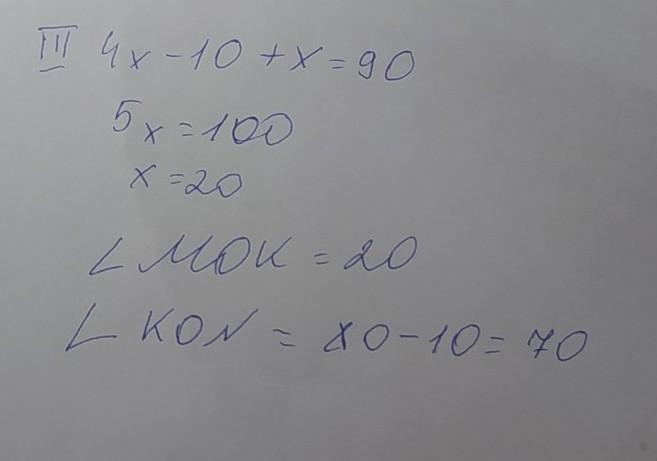 III 4x-10+x=90
5x=100
x=20
∠MOK=20
∠KON=80-10=70